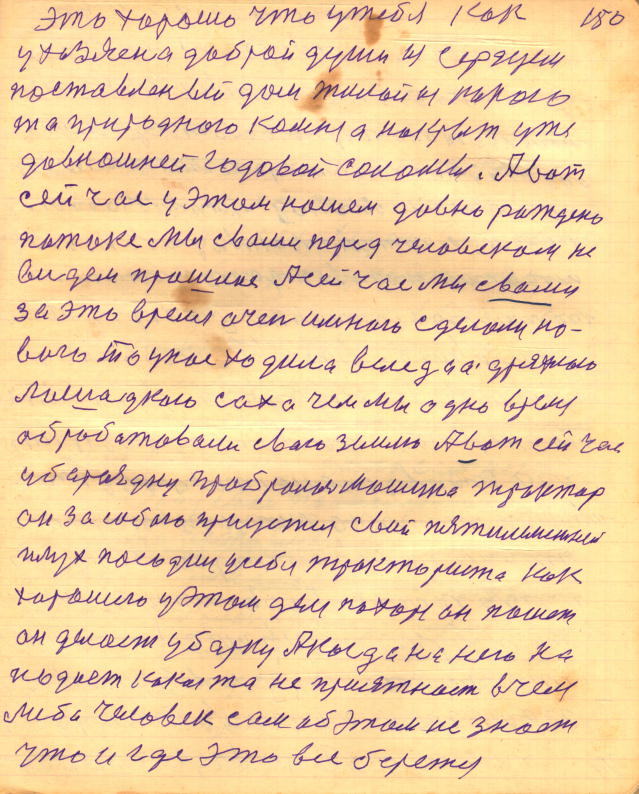 Это хорошо что у тебя как 150
у хозяена доброй души и сердцем
поставленый дом жилой и
та природного камня накрыт уже
довношней годовой соломы. А вот
сей час у этом нашем довно рождено
потоке мы свами перед человеком не
видем прошлое Асей час мы свами
за это время очен много сделали но-
вого То у нас ходила вследа
лошадкою соха чем мы одно время
обработовали своею землю А вот сей час
у
он за собою пристил свой
плуг посадил у себя тракториста как
хорошего у этом деле он пошет
он делает уборку А когда на него на
подает какаята не приятност в чем
либо человек сам об этом не знает
что и где это все берется